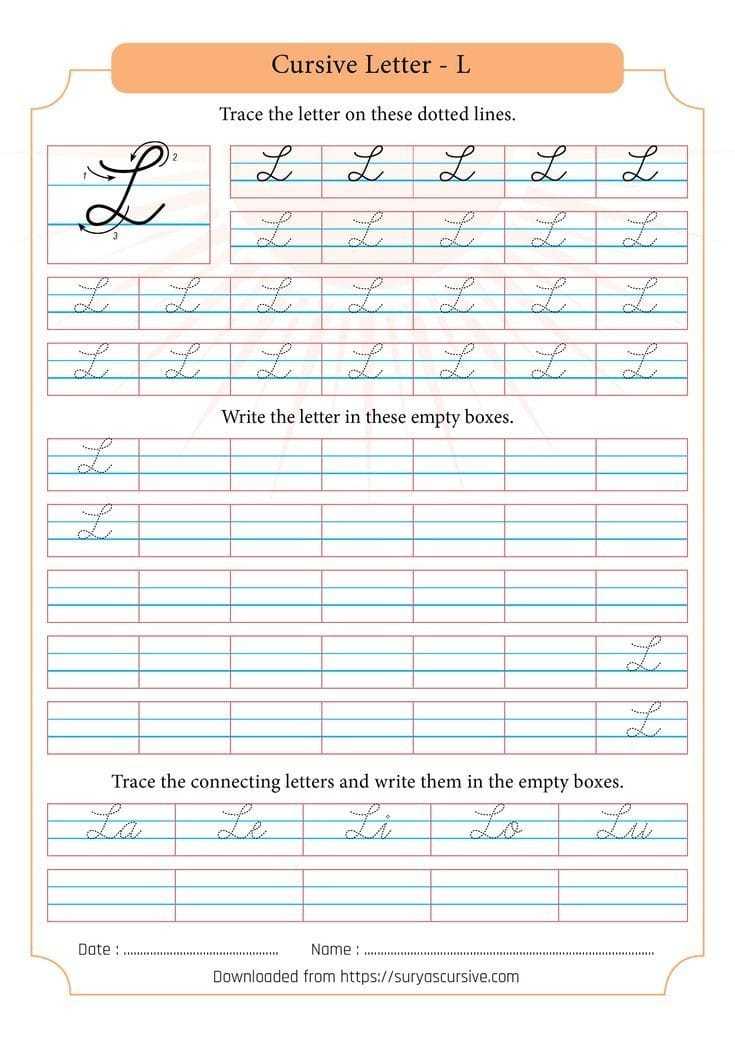 Cursive Letter - L
Trace the letter on these dotted lines.
1 2 3 L L L L L L
L L L L L
L L L L L L L
L L L L L L L
Write the letter in these empty boxes.
L
L
L
L
Trace the connecting letters and write them in the empty boxes.
La Le Li Lo Lu
Date : ............................................... Name : ........................................................................................
Downloaded from https://suryascursive.com